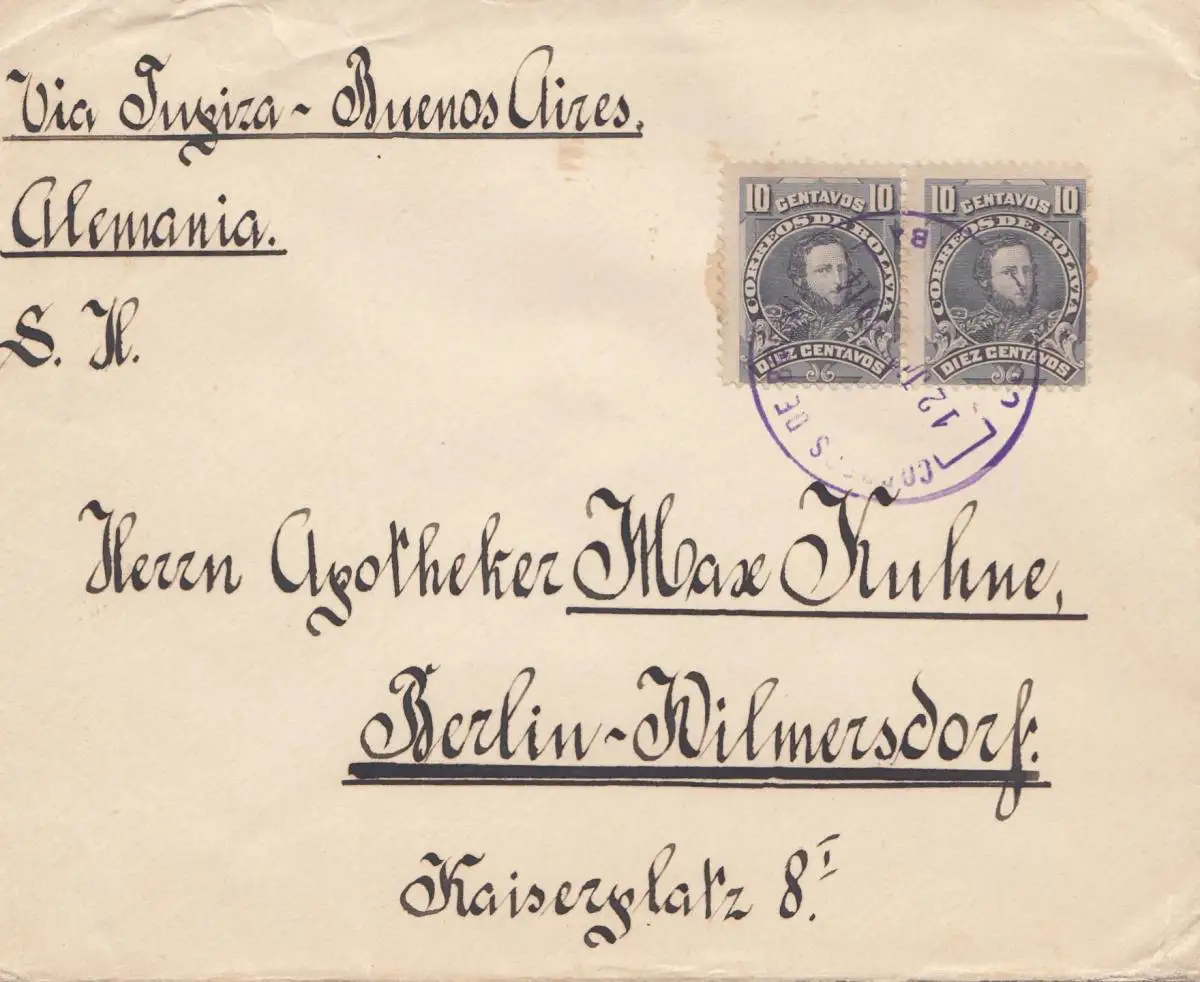 Via Tupiza - Buenos Aires.
Alemania.
S. H.
10 CENTAVOS 10
CORREOS DE BOLIVIA
DIEZ CENTAVOS
10 CENTAVOS 10
CORREOS DE BOLIVIA
DIEZ CENTAVOS
12
Herrn Apotheker Max Kuhne,
Berlin-Wilmersdorf.
Kaiserplatz 8.I